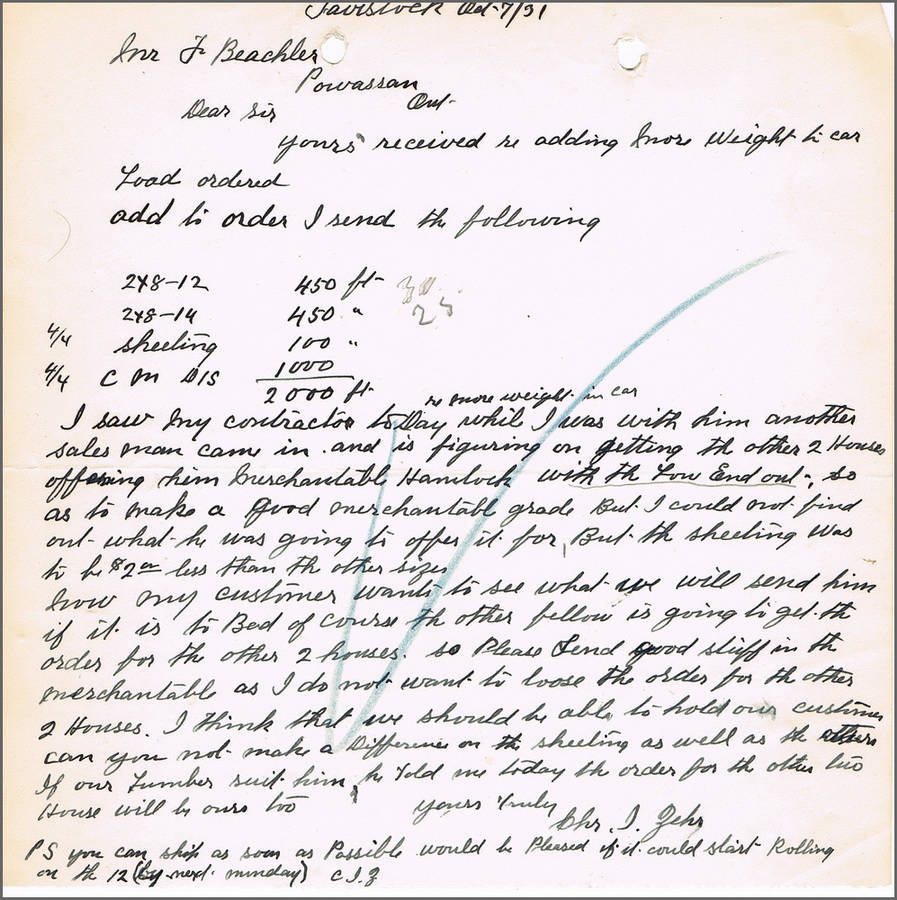 Tavistock Oct-7/31
Mr F Beachler
Powassan
Ont-
Dear Sir
yours received re adding more Weight to car
Load ordered
add to order I send the following
2x8-12 450 ft 30
2x8-14 450 " 25
4/4 sheeting 100 "
4/4 C M DIS 1000
2000 ft
re more weight in car
I saw my contractor toDay while I was with him another
sales man came in and is figuring on getting the other 2 Houses
offering him Merchantable Hamlock with the Low End out-, so
as to make a good merchantable grade But I could not find
out what he was going to offer it for, But the sheeting was
to be $2.00 less than the other sizes
Now my customer wants to see what we will send him
if it is to Bad of course the other fellow is going to get the
order for the other 2 houses. so Please Send good stuff in the
merchantable as I do not want to loose the order for the other
2 Houses. I think that we should be able to hold our customer
can you not make a Difference on the sheeting as well as the others
If our Lumber suit him, he Told me today the order for the other two
House will be ours too yours Truly
Chr. I. Zehr
PS you can ship as soon as Possible would be Pleased if it could start Rolling
on the 12 (by next munday) C.I.Z